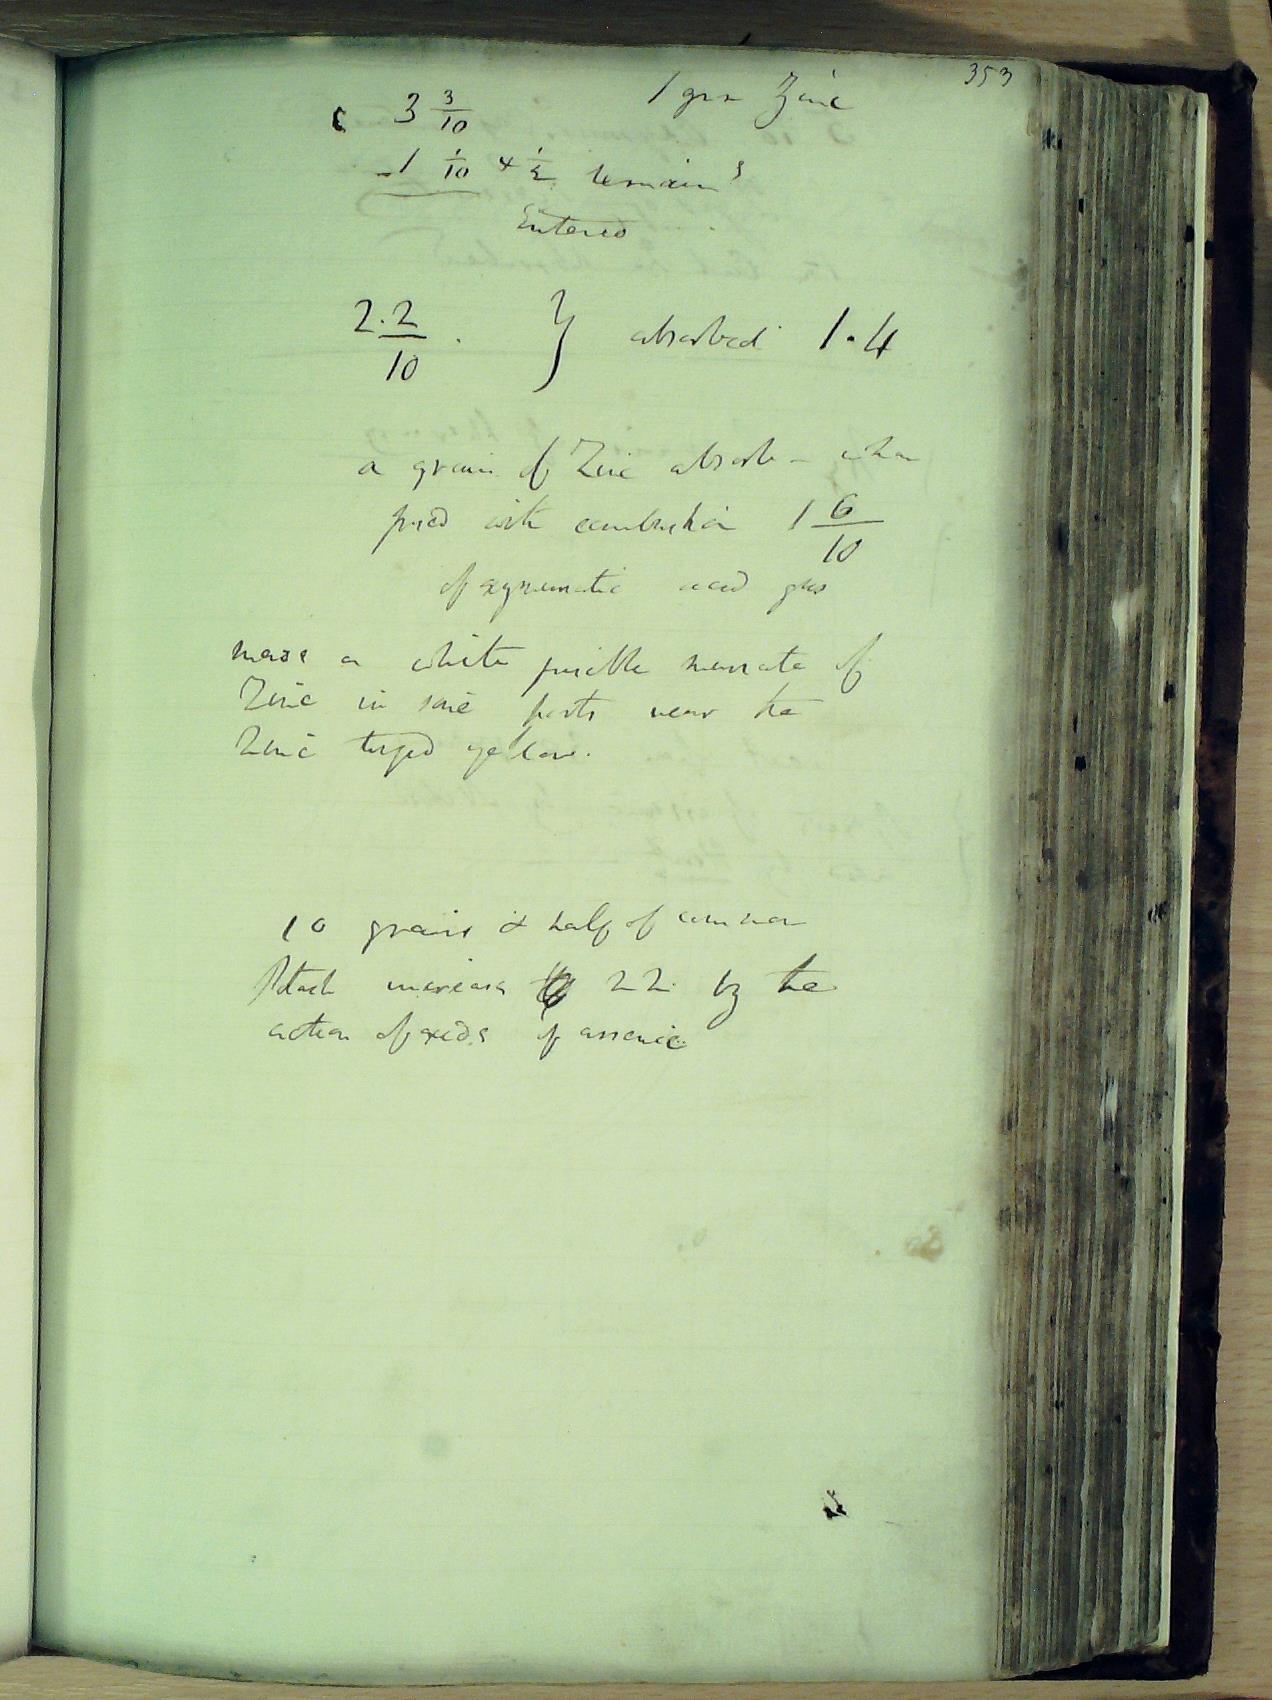 353
3 3/10 1 grn Zinc
- 1 1/10 & 1/2 remains
Entered
2.2/10 } absorbed 1.4
a grain of Zinc absorbs - when
fused with combustion 1 6/10
of oxymuriatic acid gas
made a white fusible muriate of
Zinc in some parts near the
Zinc tinged yellow.
10 grains & half of common
Potash increase 22 by the
action of oxide of arsenic